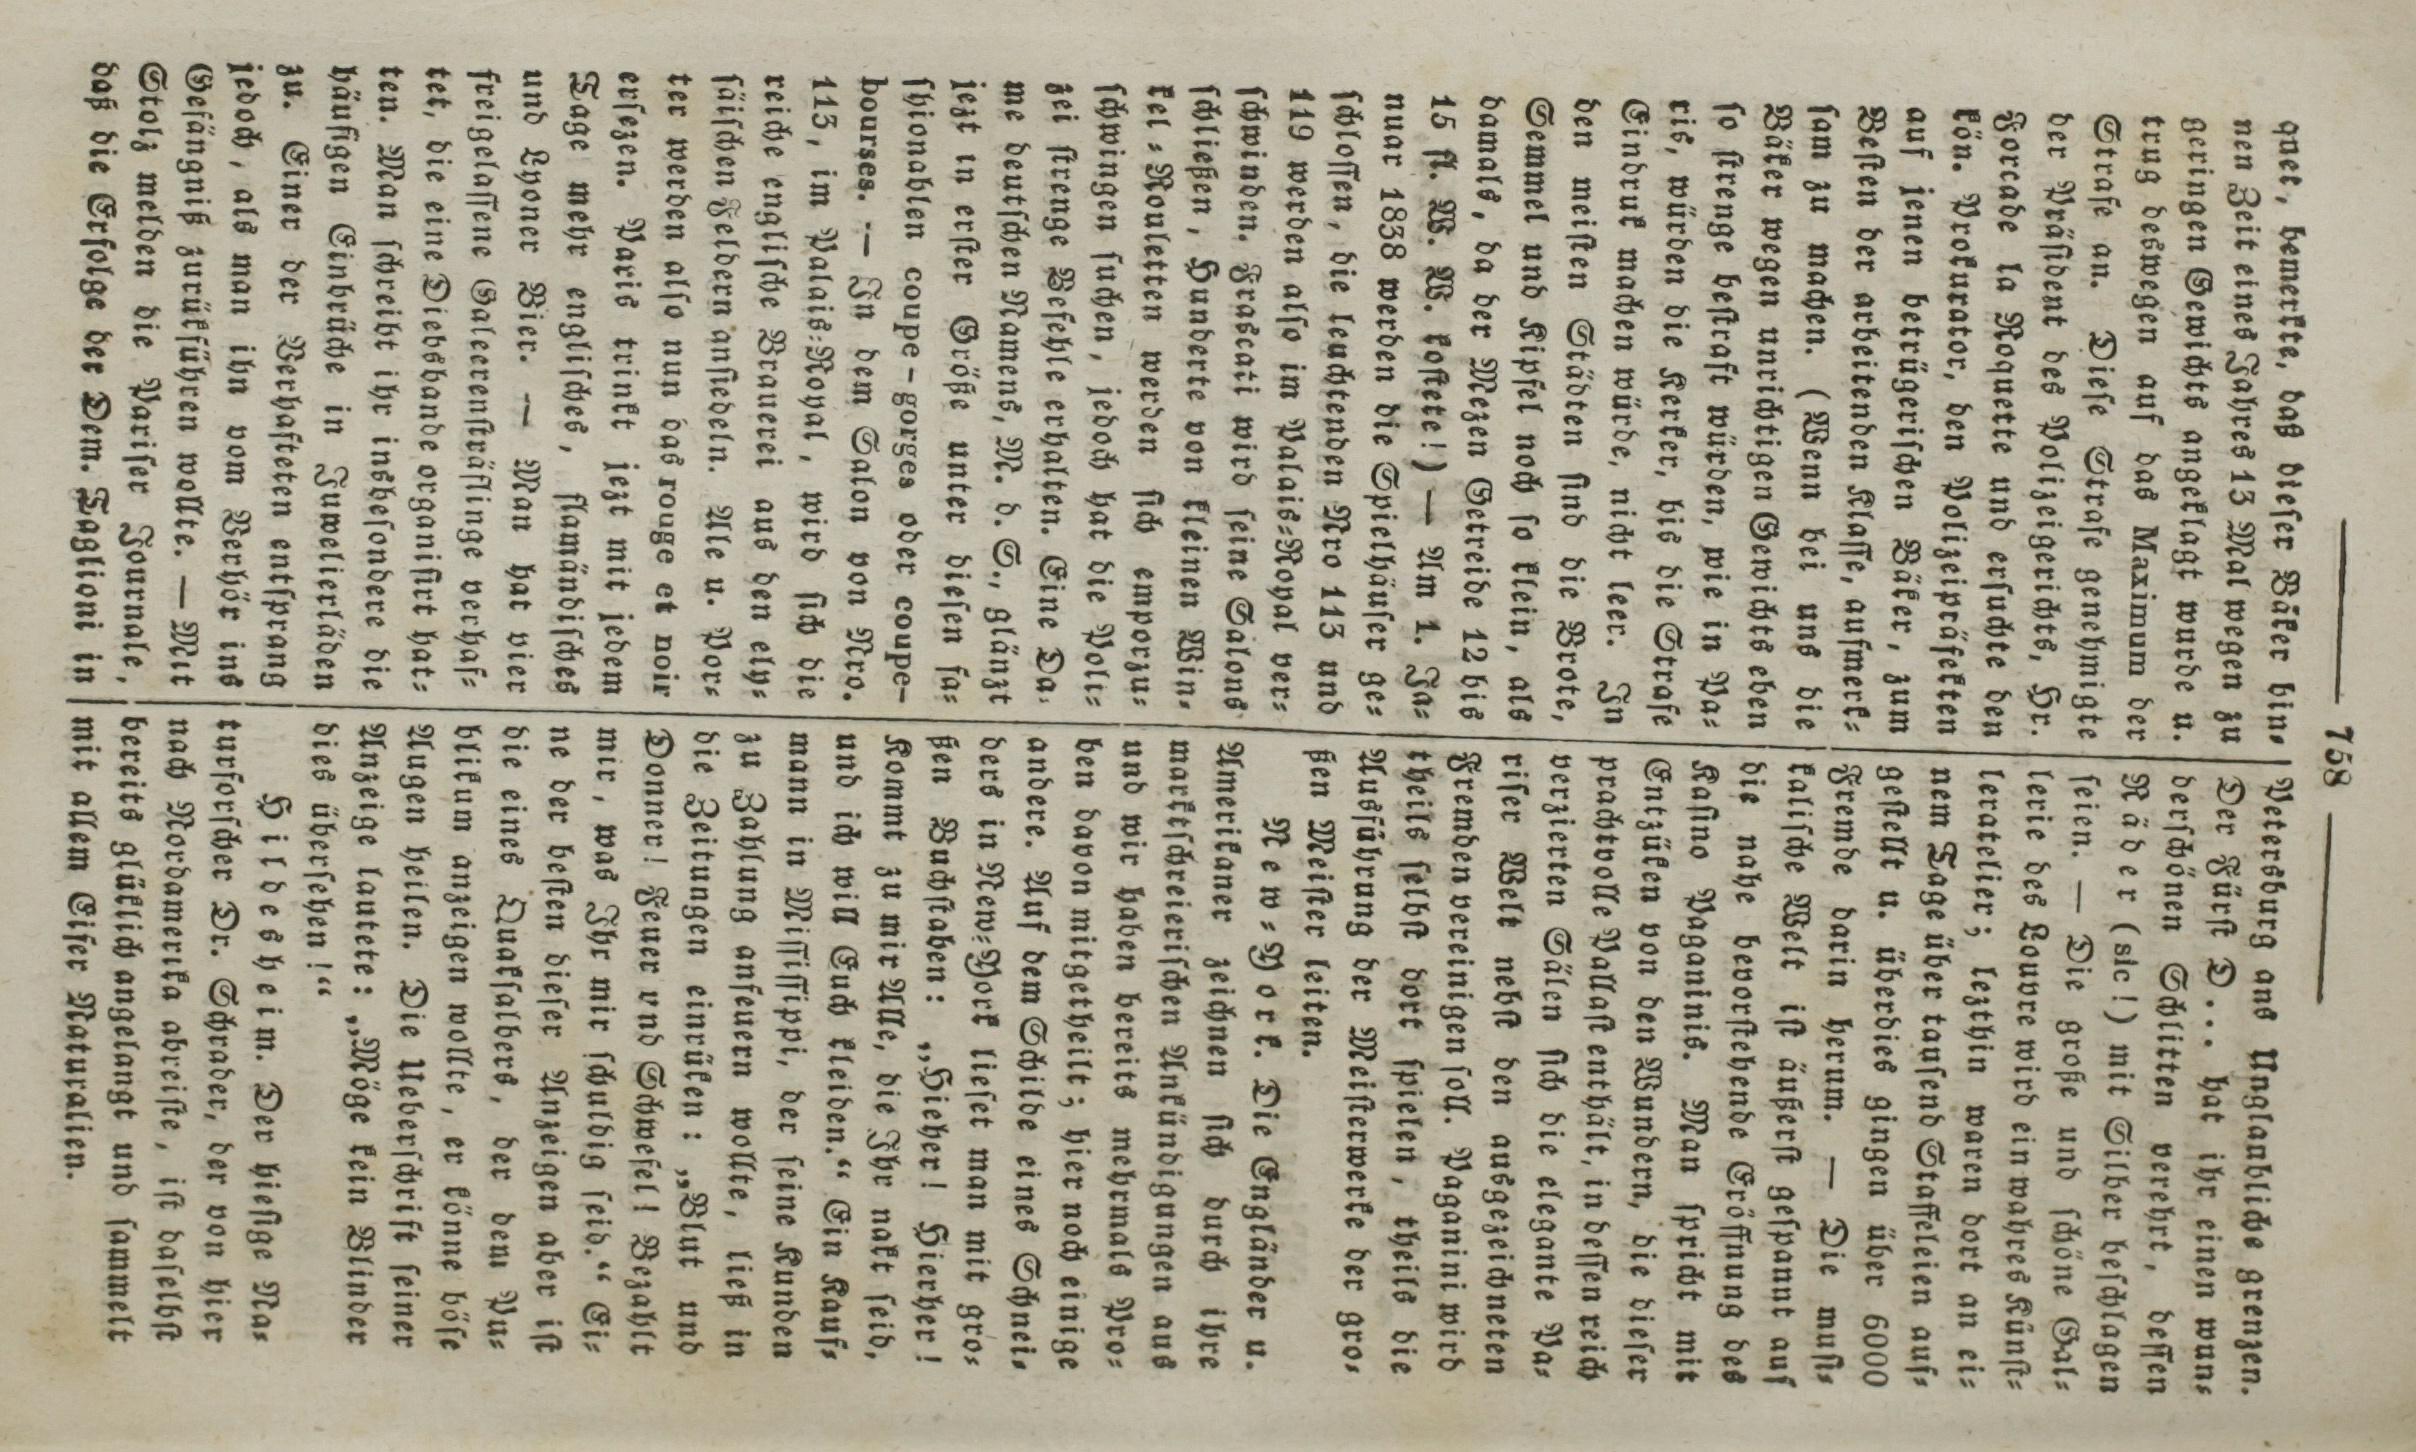 758
quet, bemerkte, daß dieser Bäker bin-
nen Zeit eines Jahres 13 Mal wegen zu
geringen Gewichts angeklagt wurde u.
trug deswegen auf das Maximum der
Strafe an. Diese Strafe genehmigte
der Präsident des Polizeigerichts, Hr.
Forcade la Roquette und ersuchte den
kön. Prokurator, den Polizeipräfekten
auf jenen betrügerischen Bäker, zum
Besten der arbeitenden Klasse, aufmerk-
sam zu machen. (Wenn bei uns die
Bäker wegen unrichtigen Gewichts eben
so strenge bestraft würden, wie in Pa-
ris, würden die Kerker, bis die Strafe
Eindruk machen würde, nicht leer. In
den meisten Städten sind die Brote,
Semmel und Kipfel noch so klein, als
damals, da der Mezen Getreide 12 bis
15 fl. W. W. kostete!) — Am 1. Ja-
nuar 1838 werden die Spielhäuser ge-
schlossen, die leuchtenden Nro 113 und
119 werden also im Palais-Royal ver-
schwinden. Frascati wird seine Salons
schließen, Hunderte von kleinen Win-
kel-Rouletten werden sich emporzu-
schwingen suchen, jedoch hat die Poli-
zei strenge Befehle erhalten. Eine Da-
me deutschen Namens, M. d. S., glänzt
jezt in erster Größe unter diesen fa-
shionablen coupe-gorges oder coupe-
bourses. — In dem Salon von Nro.
113, im Palais-Royal, wird sich die
reiche englische Brauerei aus den ely-
säischen Feldern ansiedeln. Ale u. Por-
ter werden also nun das rouge et noir
ersezen. Paris trinkt jezt mit jedem
Tage mehr englisches, flamändisches
und Lyoner Bier. — Man hat vier
freigelassene Galeerensträflinge verhaf-
tet, die eine Diebsbande organisirt hat-
ten. Man schreibt ihr insbesondere die
häufigen Einbrüche in Juwelierläden
zu. Einer der Verhafteten entsprang
jedoch, als man ihn vom Verhör ins
Gefängniß zurükführen wollte. — Mit
Stolz melden die Pariser Journale,
daß die Erfolge der Dem. Taglioni in
Petersburg ans Unglaubliche grenzen.
Der Fürst D... hat ihr einen wun-
derschönen Schlitten verehrt, dessen
Räder (sic!) mit Silber beschlagen
seien. — Die große und schöne Gal-
lerie des Louvre wird ein wahres Künst-
leratelier; lezthin waren dort an ei-
nem Tage über tausend Staffeleien auf-
gestellt u. überdies gingen über 6000
Fremde darin herum. — Die musi-
kalische Welt ist äußerst gespannt auf
die nahe bevorstehende Eröffnung des
Kasino Paganinis. Man spricht mit
Entzüken von den Wundern, die dieser
prachtvolle Pallast enthält, in dessen reich
verzierten Sälen sich die elegante Pa-
riser Welt nebst den ausgezeichneten
Fremden vereinigen soll. Paganini wird
theils selbst dort spielen, theils die
Ausführung der Meisterwerke der gro-
ßen Meister leiten.
New-York. Die Engländer u.
Amerikaner zeichnen sich durch ihre
marktschreierischen Ankündigungen aus
und wir haben bereits mehrmals Pro-
ben davon mitgetheilt; hier noch einige
andere. Auf dem Schilde eines Schnei-
ders in New-York lieset man mit gro-
ßen Buchstaben: „Hieher! Hierher!
Kommt zu mir Alle, die Ihr nakt seid,
und ich will Euch kleiden.“ Ein Kauf-
mann in Mississippi, der seine Kunden
zu Zahlung anfeuern wollte, ließ in
die Zeitungen einrüken: „Blut und
Donner! Feuer und Schwefel! Bezahlt
mir, was Ihr mir schuldig seid.“ Ei-
ne der besten dieser Anzeigen aber ist
die eines Quaksalbers, der dem Pu-
blikum anzeigen wollte, er könne böse
Augen heilen. Die Ueberschrift seiner
Anzeige lautete: „Möge kein Blinder
dies übersehen!“
Hildesheim. Der hiesige Na-
turforscher Dr. Schrader, der von hier
nach Nordamerika abreiste, ist daselbst
bereits glüklich angelangt und sammelt
mit allem Eifer Naturalien.